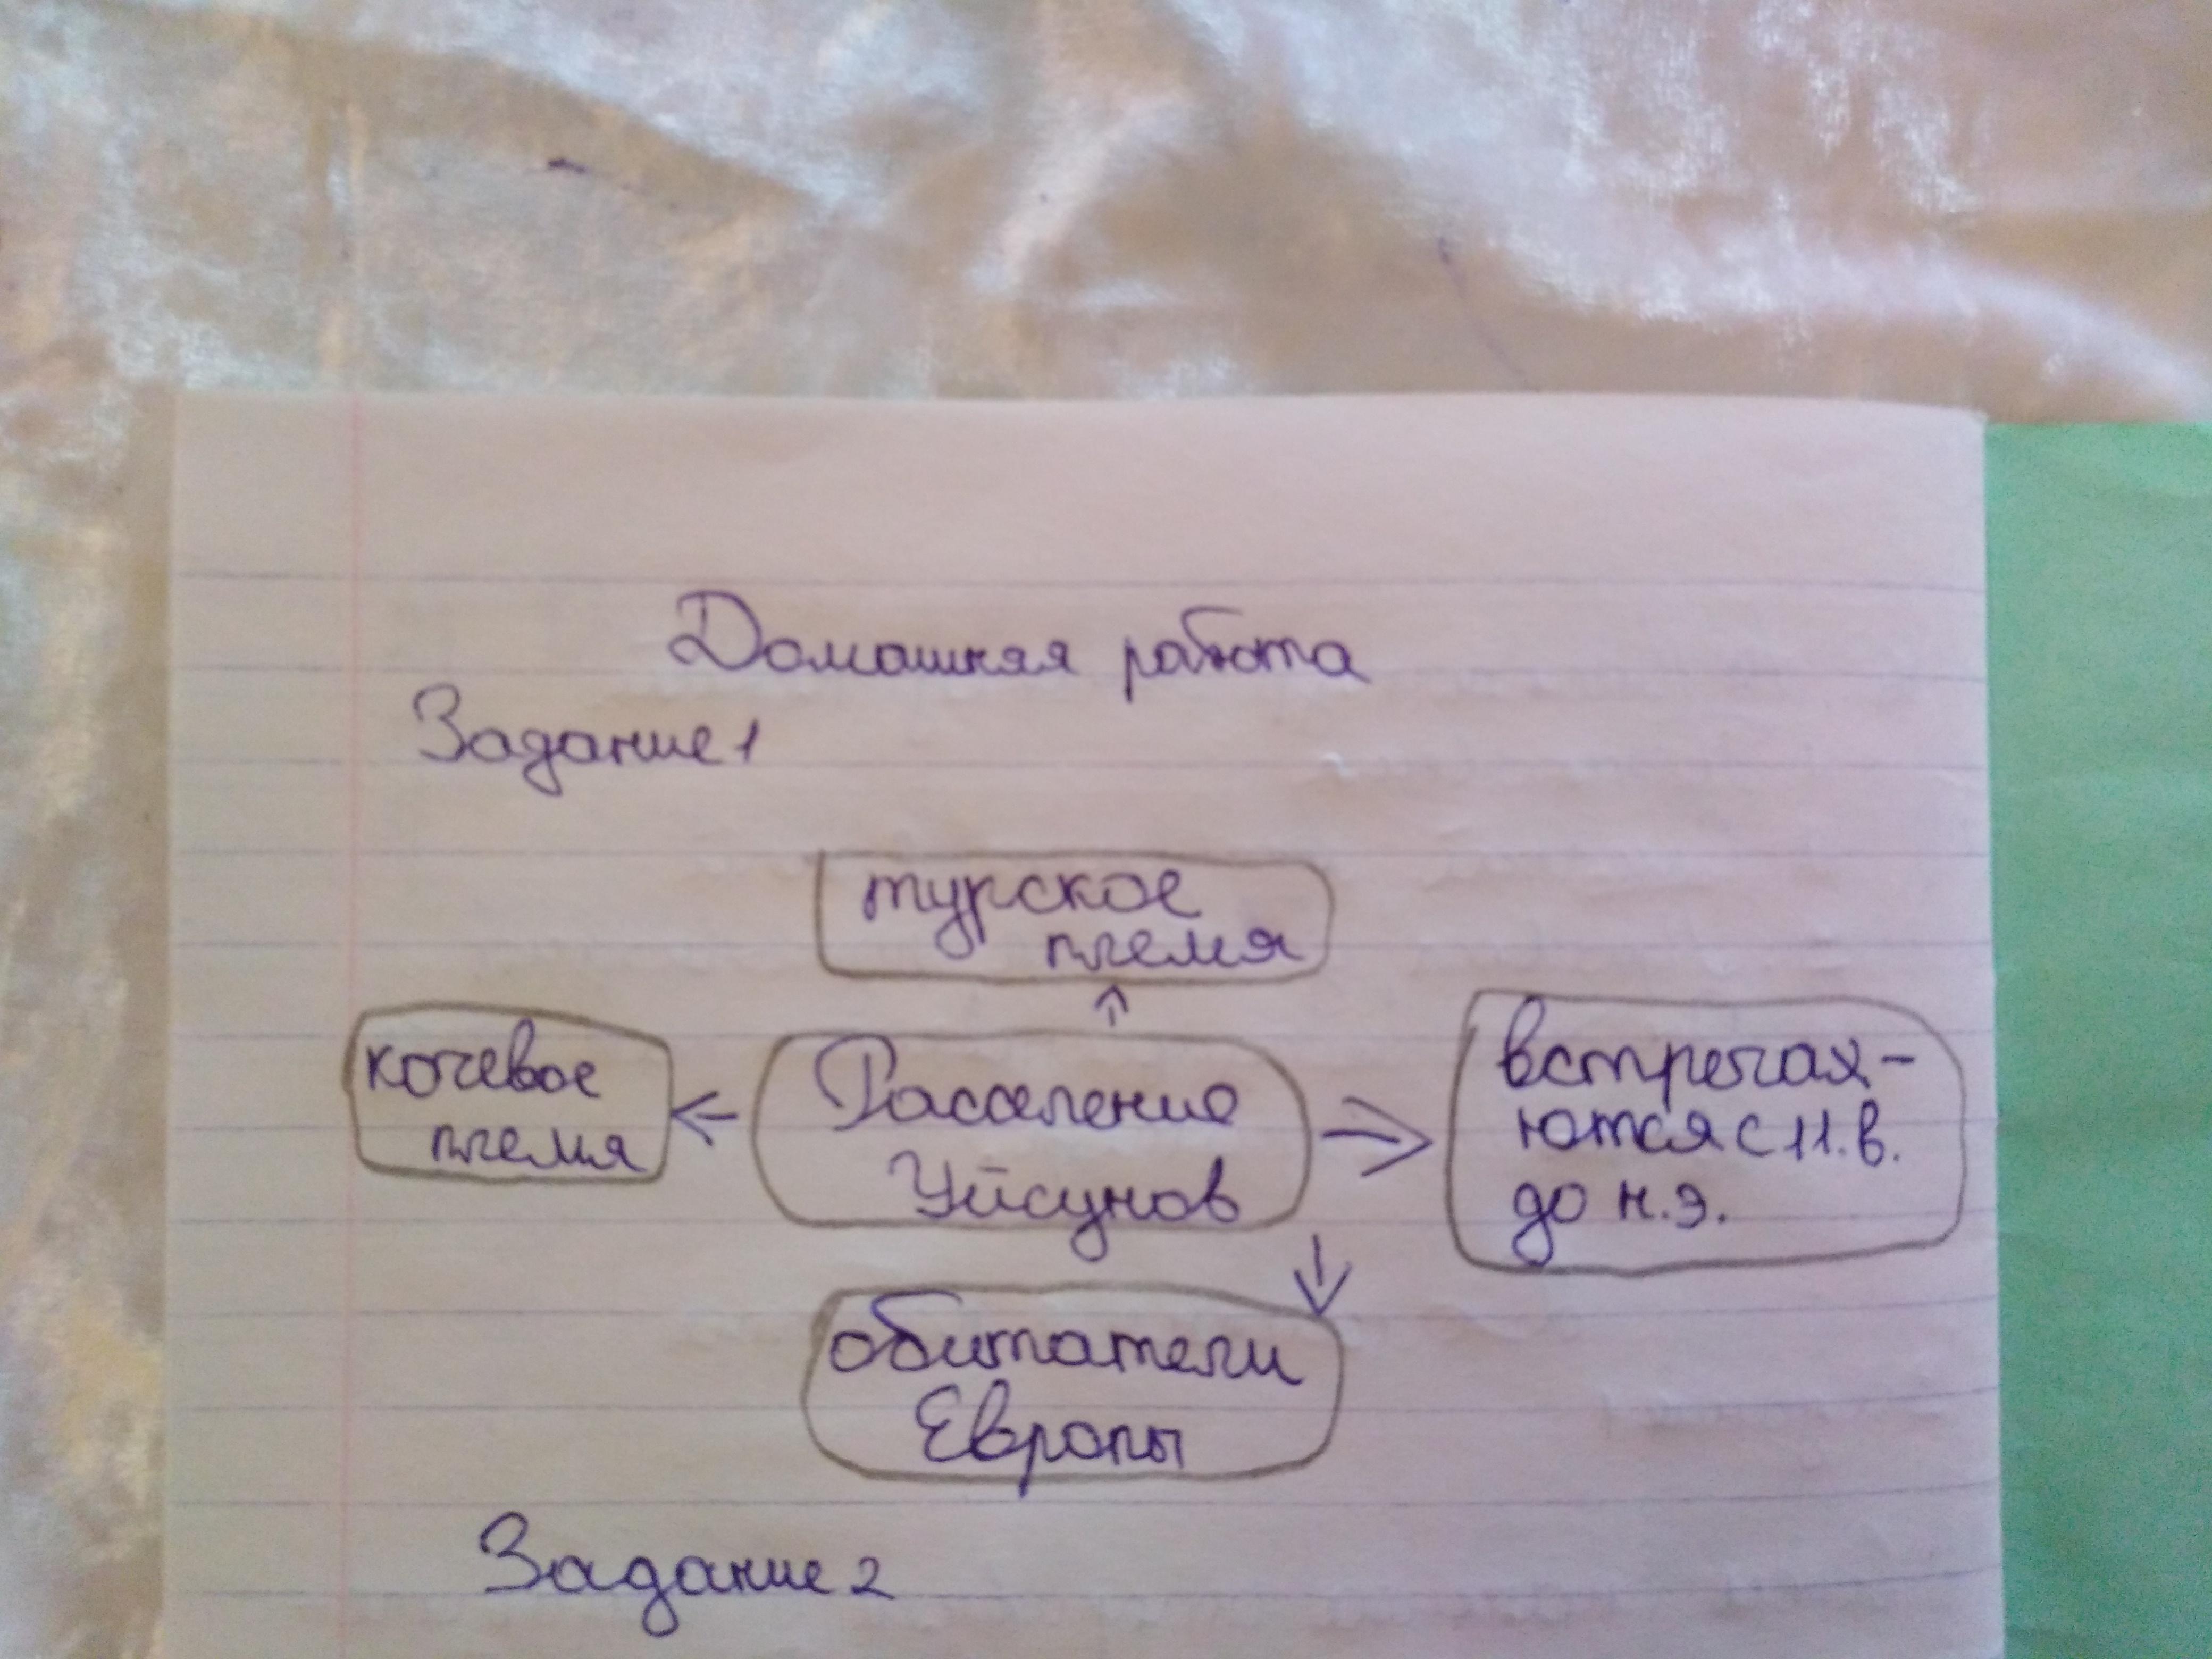 Домашняя работа
Задание 1
турское
племя
кочевое
племя
Расселение
Уйсунов
встречах-
ются с 11. в.
до н.э.
обитатели
Европы
Задание 2